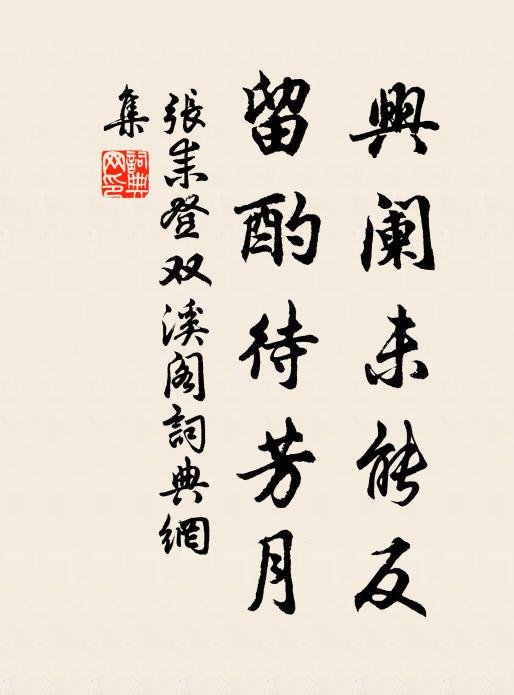 興阑未能反
留酌待芳月
張耒登双溪阁詞典網
集
詞典
网印